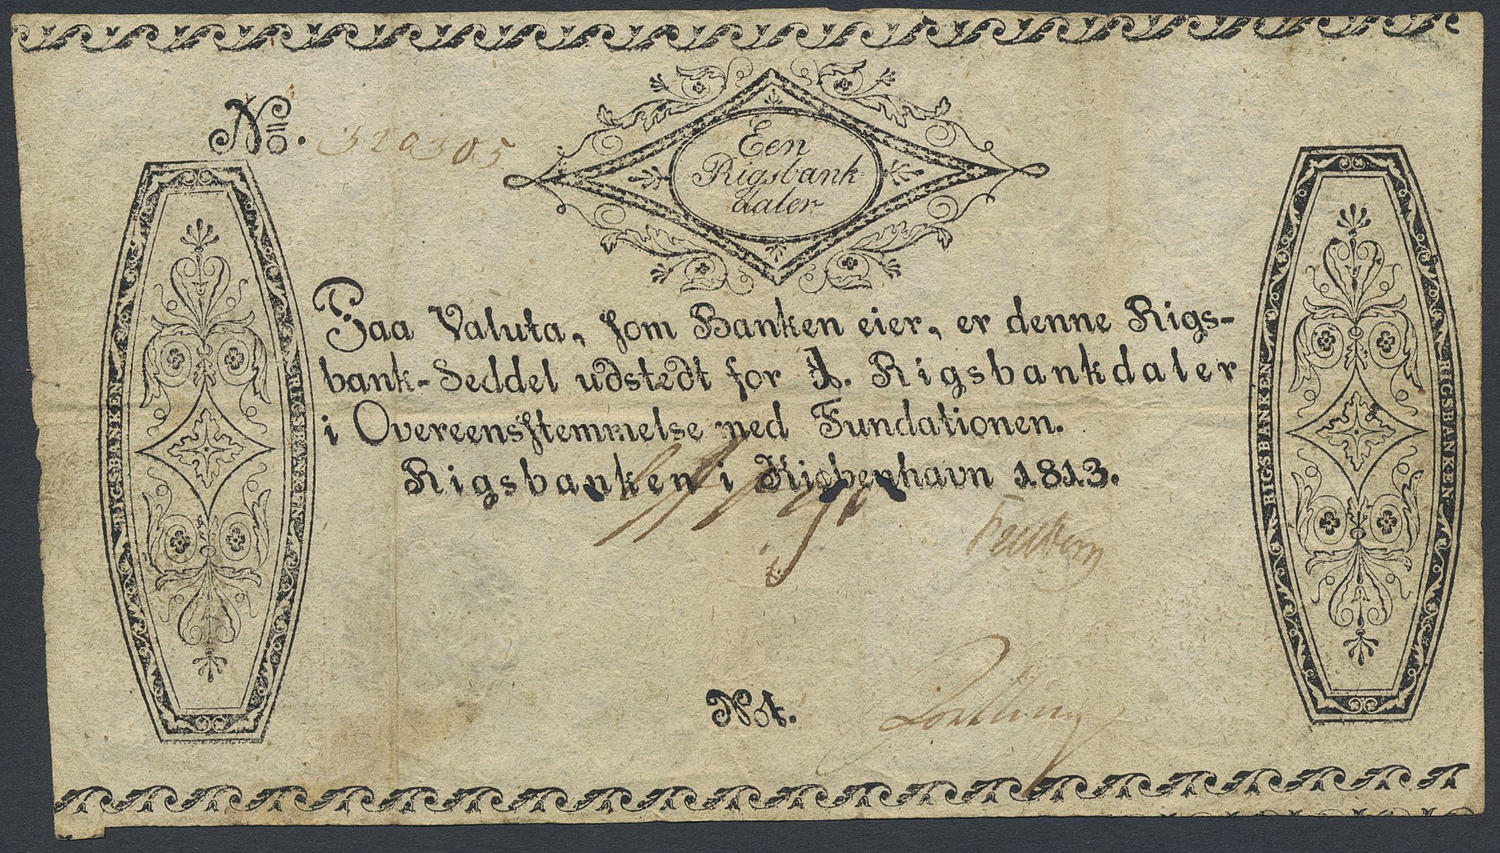 No. 320305
Een
Rigsbank
daler
Paa Valuta, som Banken eier, er denne Rigs-
bank-Seddel udstedt for 1. Rigsbankdaler
i Overeensstemmelse med Fundationen.
Rigsbanken i Kiøbenhavn 1813.
Not.
RIGSBANKEN
RIGSBANKEN
RIGSBANKEN
RIGSBANKEN